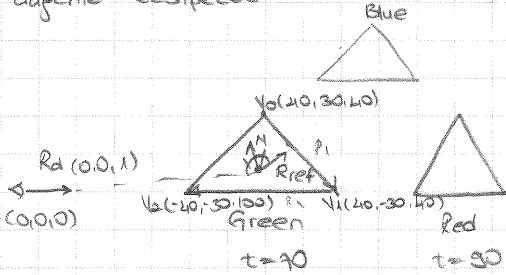 Blue
V0(40,30,40)
N
P1
Rd (0,0,1)
Rref
(0,0,0)
V2(-40,-30,100)
V1(40,-30,40)
Green
Red
t=70
t=90